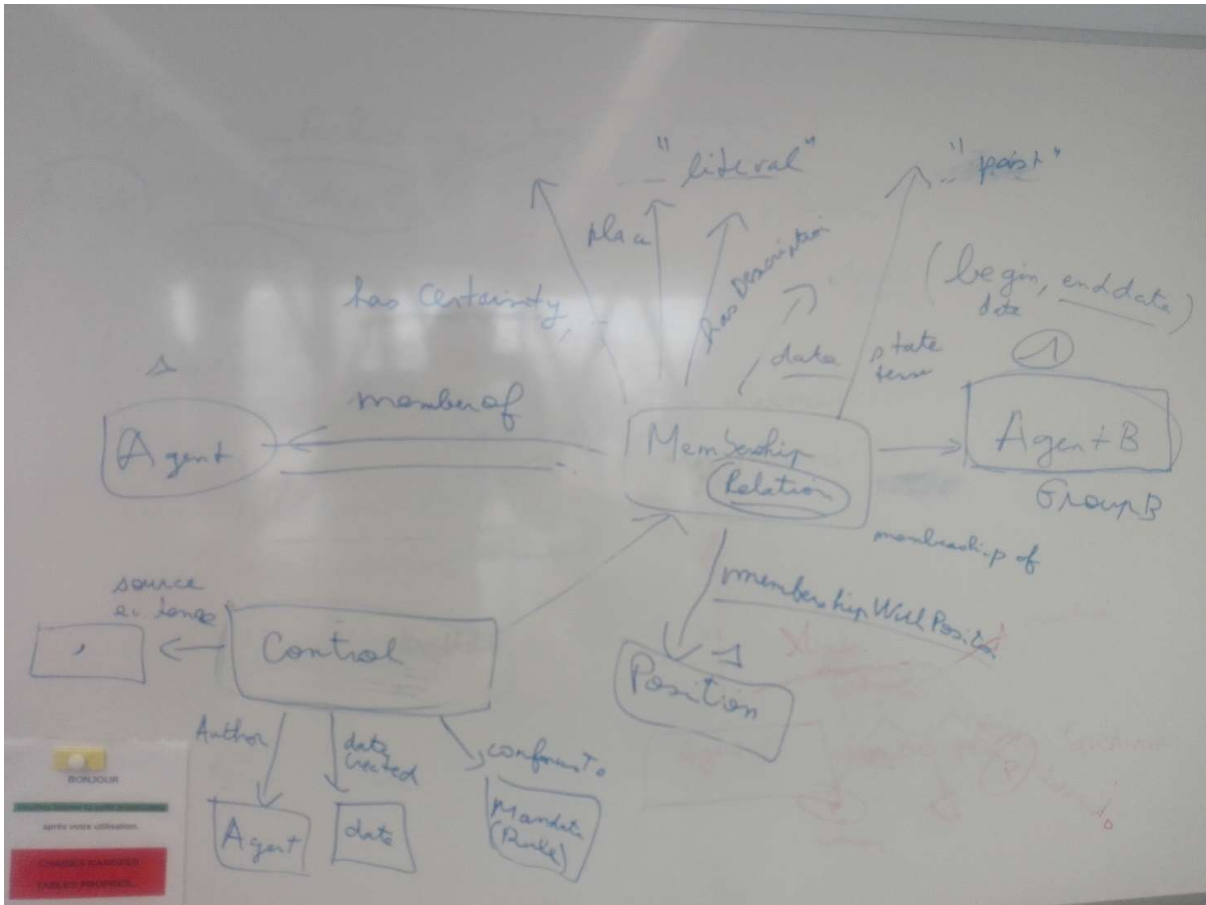 "literal"
"past"
place
has Description
(begin, end date)
date
has Certainty
date
state
term
1
member of
Agent
Membership
Relation
Agent B
Group B
membership of
source
membershipWithPosition
Control
1
Position
Author
date
created
conformsTo
Agent
date
Mandate
(Rule)
BONJOUR
après votre utilisation.
CHAISES RANGEES
TABLES PROPRES...